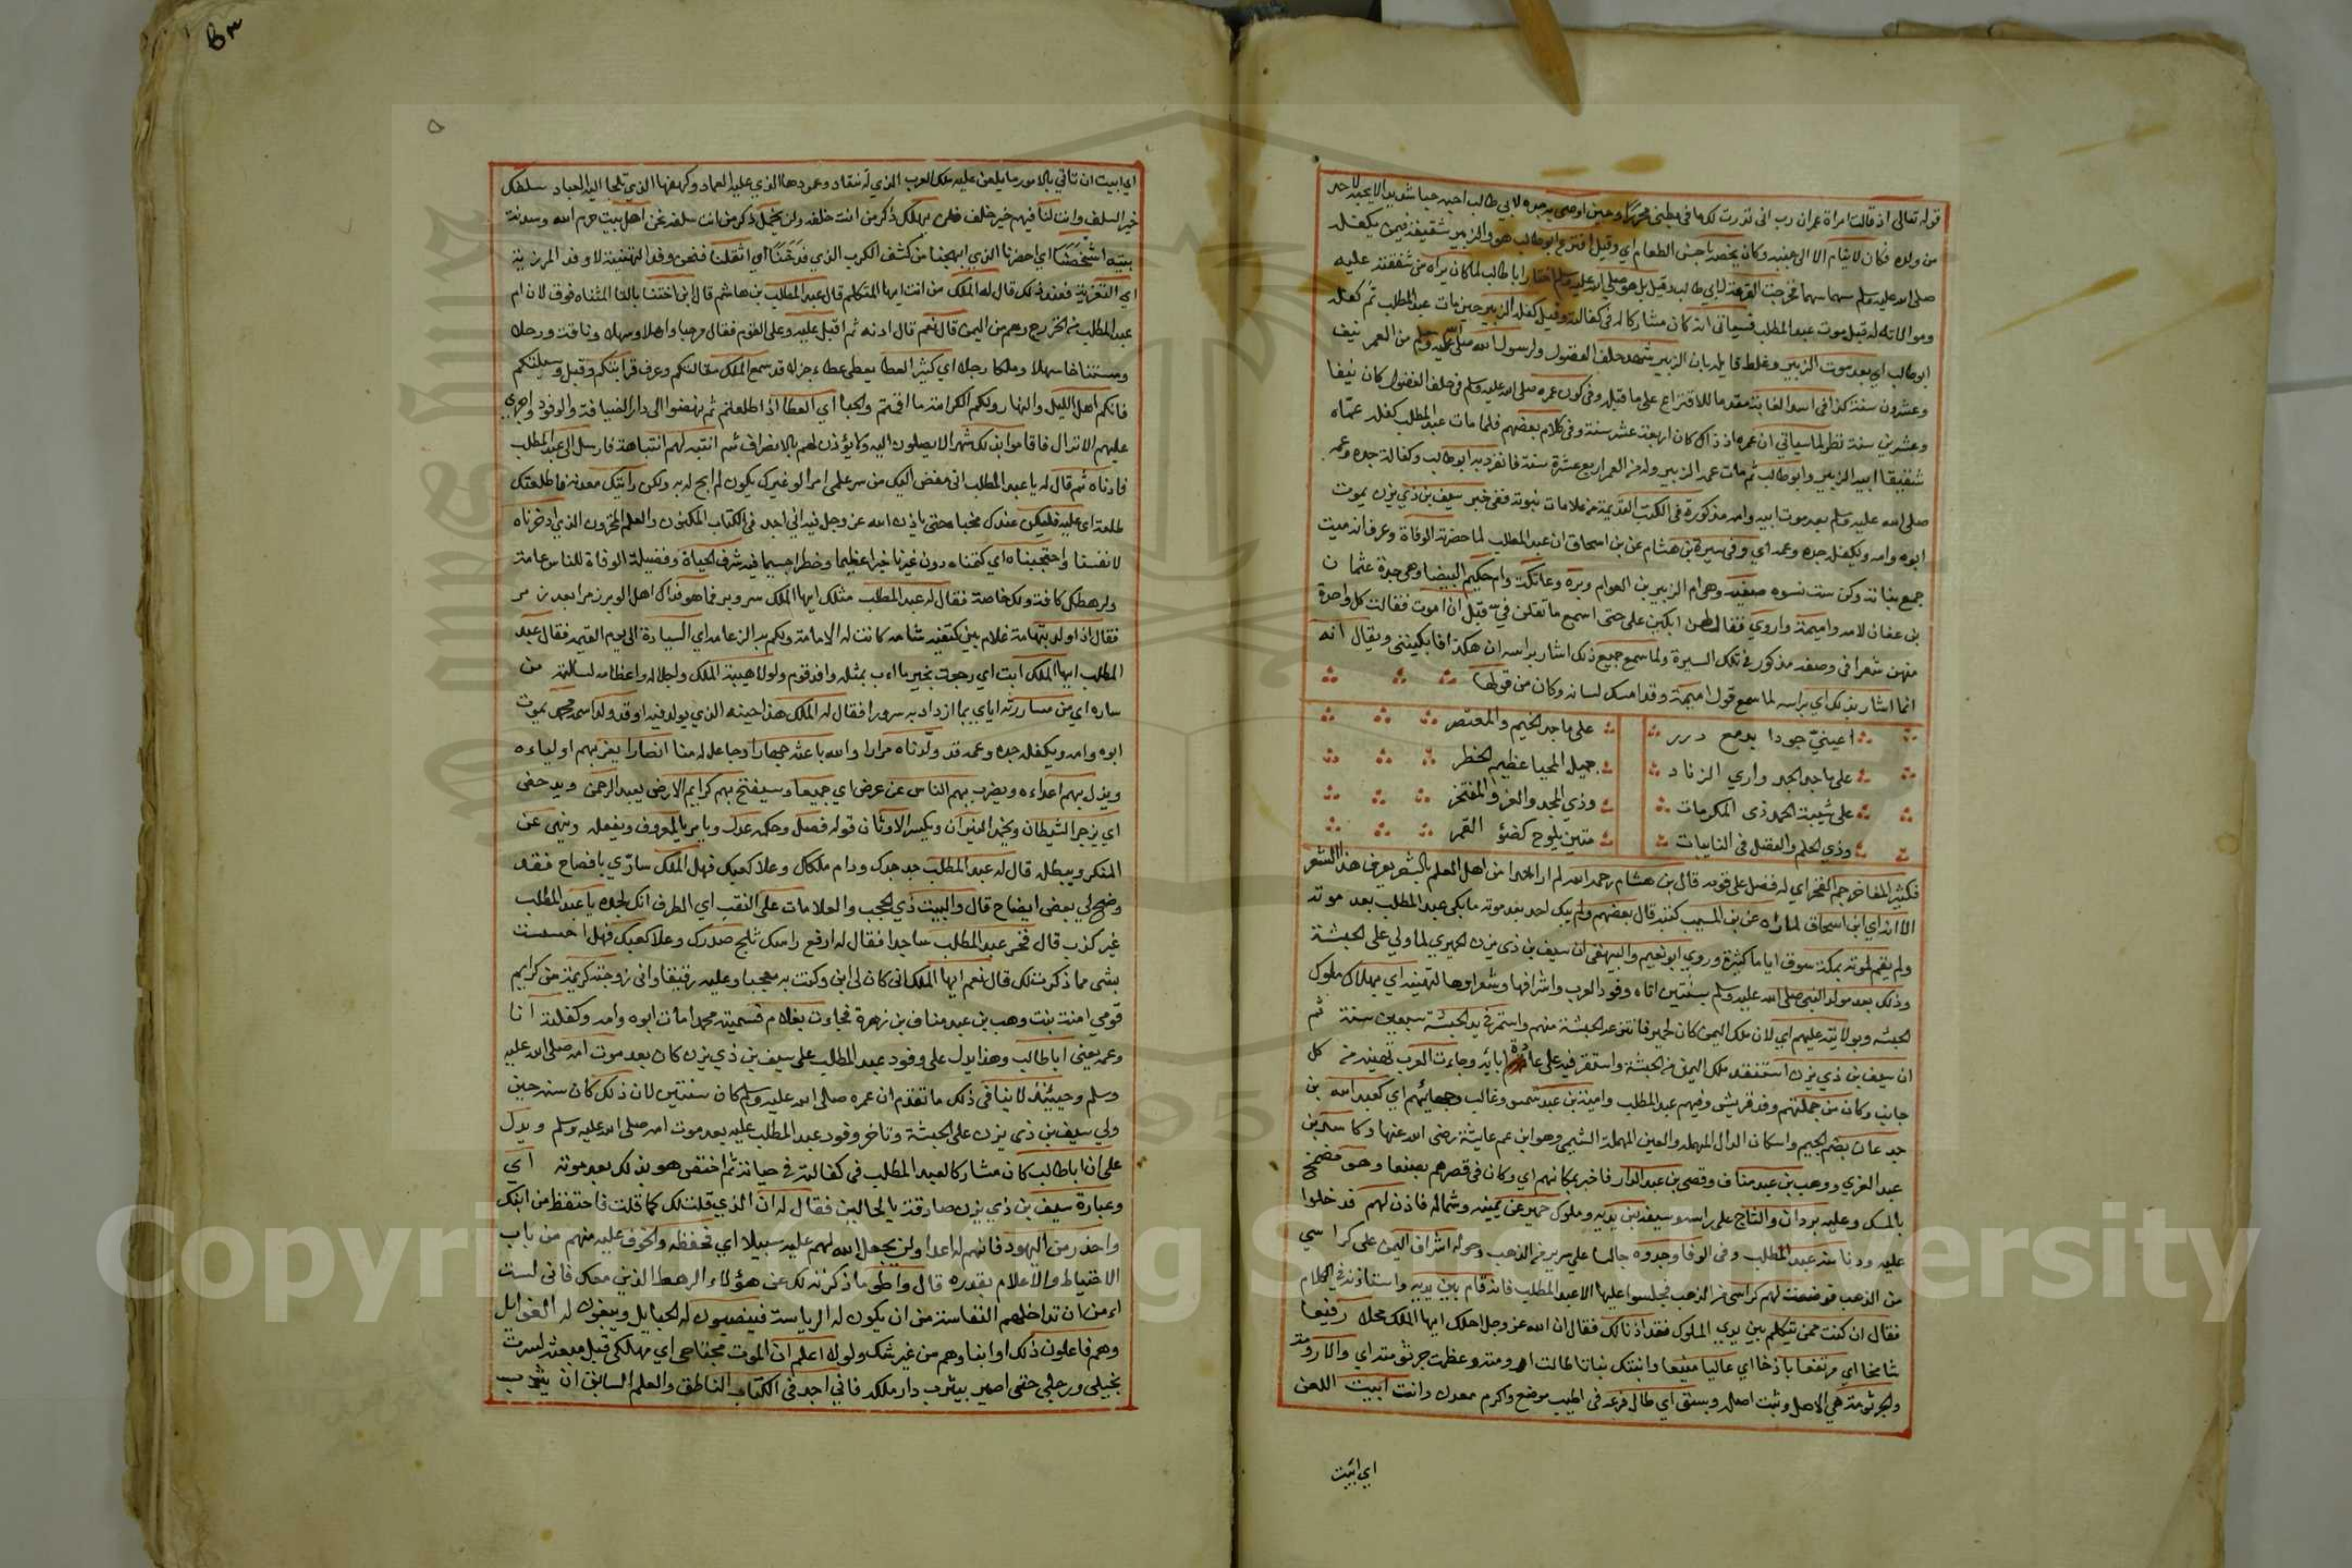 قوله تعالى اذ قالت امراة عمران رب اني نذرت لك ما في بطني محررا وحين اوصى به جده لابي طالب احبه حبا شديدا لا يحبه لاحد
من ولده فكان لا ينام الا الى جنبه وكان يخصه باحسن الطعام اي وقيل اقترع ابو طالب هو والزبير شقيقه فيمن يكفله
صلى الله عليه وسلم منهما فخرجت القرعة لابي طالب وقيل بل هو صلى الله عليه وسلم اختار ابا طالب لما كان يراه من شفقته عليه
وموالاته له قبل موت عبد المطلب فسياتي انه كان مشاركا له في كفالته وقيل كفله الزبير حين مات عبد المطلب ثم كفله
ابو طالب اي بعد موت الزبير وغلط قايله بان الزبير شهد حلف الفضول ولرسول الله صلى الله عليه وسلم من العمر نيف
وعشرون سنة كذا في اسد الغابة مقدما للاقتراع على ما قبله وفي كون عمره صلى الله عليه وسلم في حلف الفضول كان نيفا
وعشرين سنة نظر لما سياتي ان عمره اذ ذاك كان اربعة عشر سنة وفي كلام بعضهم فلما مات عبد المطلب كفله عماه
شقيقا ابيه الزبير وابو طالب ثم مات عمه الزبير وله من العمر اربع عشرة سنة فانفرد به ابو طالب وكفالة جده وعمه
صلى الله عليه وسلم بعد موت ابيه وامه مذكورة في الكتب القديمة من علامات نبوته ففي خبر سيف بن ذي يزن يموت
ابوه وامه ويكفله جده وعمه اي وفي سيرة بن هشام عن بن اسحاق ان عبد المطلب لما حضرته الوفاة وعرف انه ميت
جمع بناته وكن ست نسوة صفية وهي ام الزبير بن العوام وبرة وعاتكة وام حكيم البيضا وهي جدة عثمان
بن عفان لامه واميمة واروي فقال لهن ابكين على حتى اسمع ما تقلن في قبل ان اموت فقالت كل واحدة
منهن شعرا في وصفه مذكور في تلك السيرة ولما سمع جميع ذلك اشار براسه ان هكذا فابكينني ويقال انه
انما اشار بذلك اي براسه لما سمع قول اميمة وقد امسك لسانه وكان من قولها
اعينيّ جودا بدمع درر على ماجد الخيم والمعتصر
على ماجد الجد واري الزناد جميل المحيا عظيم الخطر
على شيبة الحمد ذى المكرمات وذي المجد والعز والمفتخر
وذي الحلم والفضل في النايبات متين يلوح كضؤ القمر
فكثير المفاخر جم الفخر اي له فضل على قومه قال بن هشام رحمه الله لم ار احدا من اهل العلم بالشعر يعرف هذا الشعر
الا انه اي ابن اسحاق لما رواه عن بن المسيب كتبه قال بعضهم ولم يبك احد بعد موته ما بكي عبد المطلب بعد موته
ولم يقم لموته بمكة سوق اياما كثيرة وروي ابو نعيم والبيهقي ان سيف بن ذي يزن الحميري لما ولي على الحبشة
وذلك بعد مولد النبي صلى الله عليه وسلم بسنتين اتاه وفود العرب واشرافها وشعراوها لتهنيه اي بهلاك ملوك
الحبشه وبولايته عليهم اي لان ملك اليمن كان لحمير فانتزعه الحبشة منهم واستمر في يد الحبشة سبعين سنة ثم
ان سيف بن ذي يزن استنقذ ملك اليمن من الحبشة واستقر فيه على عادة ابايه وجاءت العرب تهنيه من كل
جانب وكان من جملتهم وفد قريش وفيهم عبد المطلب وامية بن عبد شمس وغالب وجهائهم اي كعبد الله بن
جدعان بضم الجيم واسكان الدال المهمله والعين المهملة التيمي وهو ابن عم عايشة رضى الله عنها وكاسد بن
عبد العزي ووهب بن عبد مناف وقصي بن عبد الدار فاخبر بمكانهم اي وكان في قصره بصنعا وهو مضمخ
بالمسك وعليه بردان والتاج على راسه وسيفه بين يديه وملوك حمير عن يمينه وشماله فاذن لهم فدخلوا
عليه ودنا منه عبد المطلب وفي الوفا وجدوه جالسا على سرير من الذهب وحوله اشراف اليمن على كراسي
من الذهب فوضعت لهم كراسي من الذهب فجلسوا عليها الا عبد المطلب فانه قام بين يديه واستاذنه في الكلام
فقال ان كنت ممن يتكلم بين يدي الملوك فقد اذنا لك فقال ان الله عز وجل احلك ايها الملك محلا رفيعا
شامخا اي مرتفعا باذخا اي عاليا منيعا وانبتك نباتا طالت ارومته وعظمت جرثومته اي والارومة
والجرثومة هي الاصل وثبت اصله وبسق اي طال فرعه في اطيب موضع واكرم معدن وانت ابيت اللعن
اي ابيت
اي ابيت ان تاتي بالامور ما يلعن عليه ملك العرب الذي له تنقاد وعمودها الذي عليه العماد وكهفها الذي تلجا اليه العباد سلفك
خير السلف وانت لنا فيهم خير خلف فلن يهلك ذكر من انت خلفه ولن يخمل ذكر من انت سلفه نحن اهل بيت حرم الله وسدنة
بيته اشخصنا اي احضرنا الذي ابهجنا من كشف الكرب الذي فدحنا اي اثقلنا فنحن وفد التهنية لا وفد المرزية
اي التعزية فعند ذلك قال له الملك من انت ايها المتكلم قال عبد المطلب بن هاشم قال ابن اختنا بالتا المثناه فوق لان ام
عبد المطلب من الخزرج وهم من اليمن قال نعم قال ادنه ثم اقبل عليه وعلى القوم فقال مرحبا واهلا وسهلا وناقة ورحلا
ومستناخا سهلا وملكا رجلا اي كثير العطا يعطي عطاء جزلا قد سمع الملك مقالتكم وعرف قرابتكم وقبل وسيلتكم
فانكم اهل الليل والنهار ولكم الكرامة ما اقمتم والحبا اي العطا اذا اظعنتم ثم نهضوا الى دار الضيافة والوفود واجري
عليهم الانزال فاقاموا بذلك شهرا لا يصلون اليه ولا يؤذن لهم بالانصراف ثم انتبه لهم انتباهة فارسل الى عبد المطلب
فادناه ثم قال له يا عبد المطلب اني مفض اليك من سر علمي امرا لو غيرك يكون لم ابح له به ولكن رايتك معدنه فاطلعتك
طلعه اي عليه فليكن عندك مخبا حتى ياذن الله عز وجل فيه اني اجد في الكتاب المكنون والعلم المخزون الذي ادخرناه
لانفسنا واحتجبناه اي كتمناه دون غيرنا خبرا عظيما وخطرا جسيما فيه شرف الحياة وفضيلة الوفاة للناس عامة
ولرهطك كافة ولك خاصة فقال له عبد المطلب مثلك ايها الملك سر وبر فما هو فداك اهل الوبر زمرا بعد زمر
فقال اذا ولد بتهامة غلام بين كتفيه شامه كانت له الامامة ولكم به الزعامه اي السيادة الى يوم القيمه فقال عبد
المطلب ايها الملك ابت اي رجعت بخير ما اب بمثله وافد قوم ولولا هيبة الملك واجلاله واعظامه لسالته من
ساره اي من مساررته اياي بما ازداد به سرورا فقال له الملك هذا حينه الذي يولد فيه او قد ولد اسمه محمد يموت
ابوه وامه ويكفله جده وعمه قد ولدناه مرارا والله باعثه جهارا وجاعل له منا انصارا يعز بهم اولياءه
ويذل بهم اعداءه ويضرب بهم الناس عن عرض اي جميعا وسيفتح بهم كرايم الارض يعبد الرحمن ويدحض
اي يزجر الشيطان ويخمد النيران ويكسر الاوثان قوله فصل وحكمه عدل ويامر بالمعروف ويفعله وينهى عن
المنكر ويبطله قال له عبد المطلب جد جدك ودام ملكك وعلا كعبك فهل الملك سارّي بافصاح فقد
وضح لي بعض ايضاح قال والبيت ذي الحجب والعلامات على النقب اي الطرف انك لجده يا عبد المطلب
غير كذب قال فخر عبد المطلب ساجدا فقال له ارفع راسك ثلج صدرك وعلا كعبك فهل احسست
بشي مما ذكرت لك قال نعم ايها الملك انى كان لي ابن وكنت به معجبا وعليه رفيقا واني زوجته كريمة من كرايم
قومي امنة بنت وهب بن عبد مناف بن زهرة فجاءت بغلام فسميته محمدا مات ابوه وامه وكفلته انا
وعمه يعني ابا طالب وهذا يدل على وفود عبد المطلب على سيف بن ذي يزن كان بعد موت امه صلى الله عليه
وسلم وحينئذ لا ينافي ذلك ما تقدم ان عمره صلى الله عليه وسلم كان سنتين لان ذلك كان سنه حين
ولي سيف بن ذي يزن على الحبشة وتاخر وفود عبد المطلب عليه بعد موت امه صلى الله عليه وسلم ويدل
على ان ابا طالب كان مشاركا لعبد المطلب في كفالته في حياته ثم اختص هو بذلك بعد موته اي
وعبارة سيف بن ذي يزن صادقة بالحالين فقال له ان الذي قلت لك كما قلت فاحتفظ من ابنك
واحذر من اليهود فانهم له اعدا ولن يجعل الله لهم عليه سبيلا اي فحفظه والخوف عليه منهم من باب
الاحتياط والاعلام بقدره قال واطو ما ذكرته لك عن هؤلاء الرهط الذين معك فاني لست
اءمن ان تداخلهم النفاسة من ان يكون له الرياسة فينصبون له الحبايل ويبغون له الغوايل
وهم فاعلون ذلك او ابناوهم من غير شك ولولا اعلم ان الموت مجتاحي اي مهلكي قبل مبعثه لسرت
بخيلى ورجلى حتى اصير بيثرب دار ملكه فاني اجد في الكتاب الناطق والعلم السابق ان يثرب